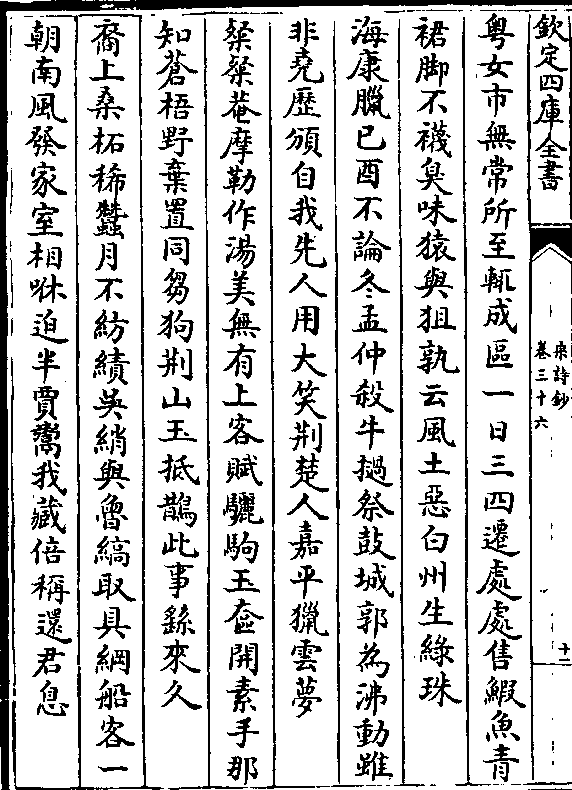 欽定四庫全書
宋詩鈔
卷三十六
十二
粤女市無常所至輒成區一日三四遷處處售鰕魚青
裙脚不襪臭味猿與狙孰云風土惡白州生緑珠
海康臘己酉不論冬孟仲殺牛撾祭鼓城郭為沸動雖
非堯歴頒自我先人用大笑荆楚人嘉平獵雲夢
粲粲菴摩勒作湯美無有上客賦驪駒玉奩開素手那
知蒼梧野棄置同芻狗荆山玉抵鵲此事繇來久
裔上桑柘稀蠶月不紡績吳綃與魯縞取具綱船客一
朝南風發家室相咻迫半賈鬻我藏倍稱還君息